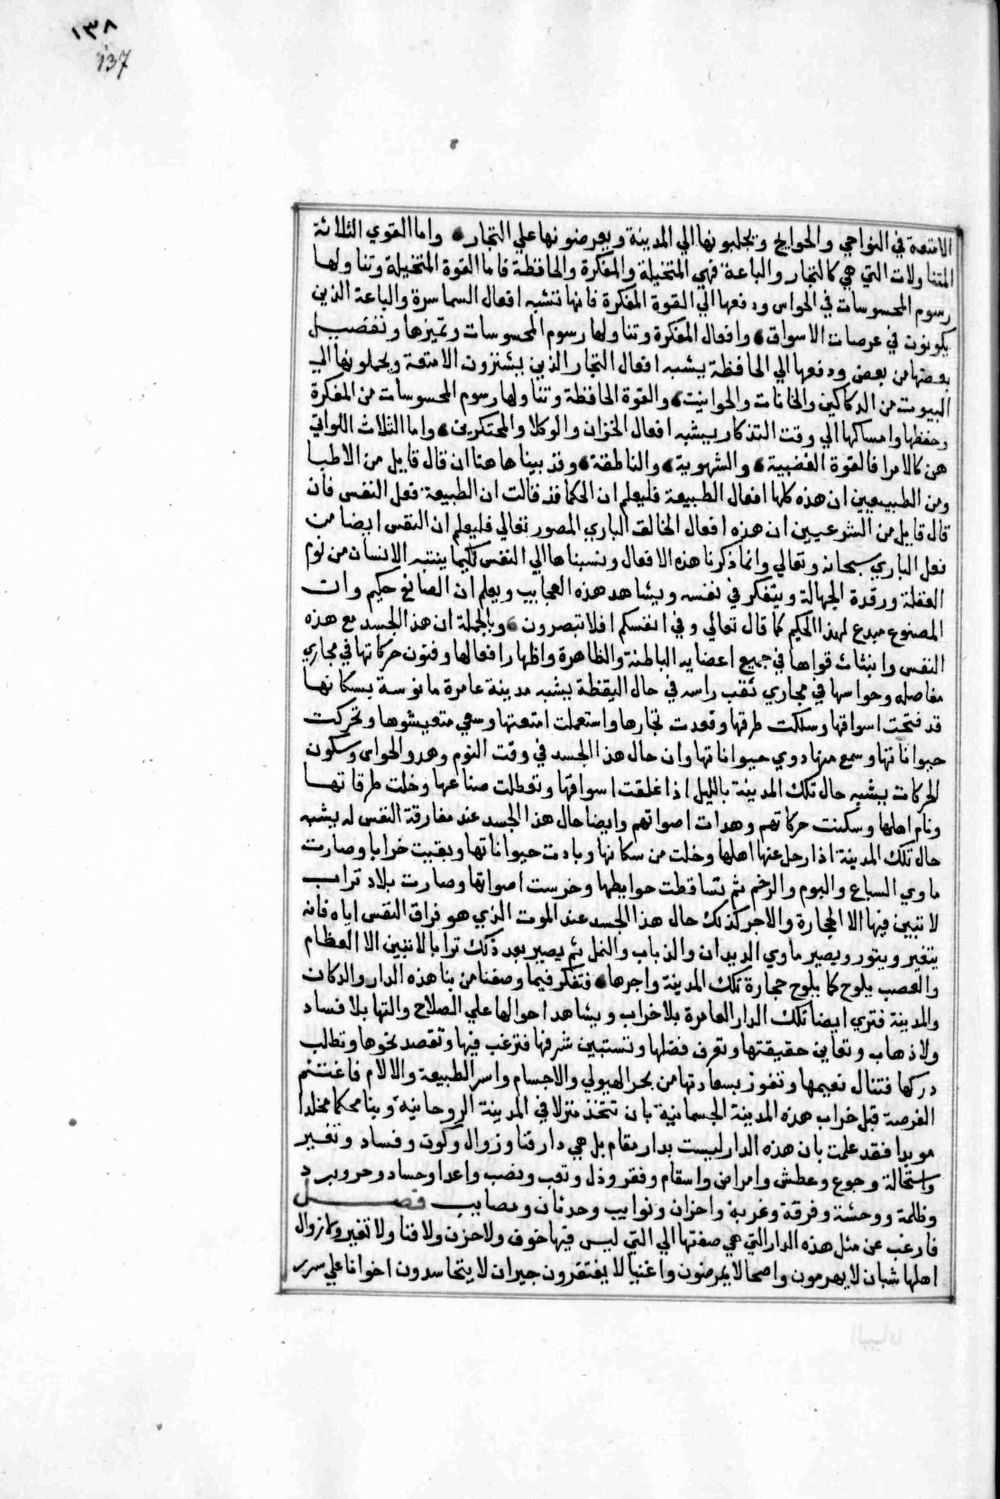 ١٣٨
137
الامتعة في النواحي والحوايج ويجلبونها الي المدينة ويعرضونها علي التجار واما القوي الثلاثة
المتناولات التي هي كالتجار والباعة فهي المتخيلة والمفكرة والحافظة فاما القوة المتخيلة وتناولها
رسوم المحسوسات في الحواس ودفعها الي القوة المفكرة فانها تشبه افعال السماسرة والباعة الذين
يكونون في عرصات الاسواق وافعال المفكرة وتناولها رسوم المحسوسات وتميزها وتفصيل
بعضها من بعض ودفعها الي الحافظة يشبه افعال التجار الذين يشترون الامتعة ويحملونها الي
البيوت من الدكاكين والخانات والحوانيت والقوة الحافظة وتناولها رسوم المحسوسات من المفكرة
وحفظها وامساكها الي وقت التذكار يشبه افعال الخزان والوكلا والمحتكرين واما الثلاث اللواتي
هن كالامرا فالقوة الغضبية والشهوية والناطقة وقد بيناها هنا ان قال قايل من الاطبا
ومن الطبيعيين ان هذه كلها افعال الطبيعة فليعلم ان الحكما قد قالت ان الطبيعة فعل النفس فان
قال قايل من الشرعيين ان هذه افعال الخالف الباري المصور تعالي فليعلم ان النفس ايضا من
فعل الباري سبحانه وتعالي وانما ذكرنا هذه الافعال ونسبناها الي النفس لكيما ينتبه الانسان من نوم
الغفلة ورقدة الجهالة ويتفكر في نفسه ويشاهد هذه العجايب ويعلم ان الصانع حكيم وان
المصنوع مبدع لهذا الحكيم كما قال تعالي وفي انفسكم افلا تبصرون وبالجملة ان هذا الجسد مع هذه
النفس وانبثاث قواها في جميع اعضايه الباطنة والظاهرة واظهار افعالها وفنون حركاتها في مجاري
مفاصله وحواسها في مجاري ثقب راسه في حال اليقظة يشبه مدينة عامرة مانوسة بسكانها
قد فتحت اسواقها وسلكت طرقها وقعدت تجارها واستعملت امتعتها وسعي متعيشوها وتحركت
حيواناتها وسمع منها دوي حيواناتها وان حال هذا الجسد في وقت النوم وهدو الحواس وسكون
الحركات يشبه حال تلك المدينة بالليل اذا غلقت اسواقها وتعطلت صناعها وخلت طرقاتها
ونام اهلها وسكنت حركاتهم وهدات اصواتهم وايضا حال هذا الجسد عند مفارقة النفس له يشبه
حال تلك المدينة اذا رحل عنها اهلها وخلت من سكانها وبادت حيواناتها وبقيت خرابا وصارت
ماوي السباع والبوم والرخم ثم تساقطت حوايطها وخرست اصواتها وصارت بلاد تراب
لا تبين فيها الا الحجارة والاجر كذلك حال هذا الجسد عند الموت الذي هو فراق النفس اياه فانه
يتغير ويتور ويصير ماوي الديدان والذباب والنمل ثم يصير بعد ذلك ترابا لا تبين الا العظام
والعصب يلوح كما يلوح حجارة تلك المدينة واجرها فتفكر فيما وصفنا من بنا هذه الدار والدكان
والمدينة فتري ايضا تلك الدار العامرة بلا خراب ويشاهد احوالها علي الصلاح والتها بلا فساد
ولا ذهاب وتعاين حقيقتها وتعرف فضلها وتستبين شرفها فترغب فيها وتقصد نحوها وتطلب
دركها فتنال نعيمها وتفوز بسعادتها من بحر الهيولي والاجسام واسر الطبيعة والالام فاغتنم
الفرصة قبل خراب هذه المدينة الجسمانية بان تتخذ منزلا في المدينة الروحانية وبنا محكما مخلدا
موبدا فقد علمت بان هذه الدار ليست بدار مقام بل هي دار فنا وزوال وكون وفساد وتغير
واستحالة وجوع وعطش وامراض واسقام وفقر وذل وتعب ونصب واعدا وحساد وحر وبرد
وظلمة ووحشة وفرقة وغربة واحزان ونوايب وحدثان ومصايب فصل
فارغب عن مثل هذه الدار التي هي صفتها الي التي ليس فيها خوف ولا حزن ولا فنا ولا تغير ولا زوال
اهلها شبان لا يهرمون واصحا لا يمرضون واغنيا لا يفتقرون جيران لا يتحاسدون اخوانا علي سرر